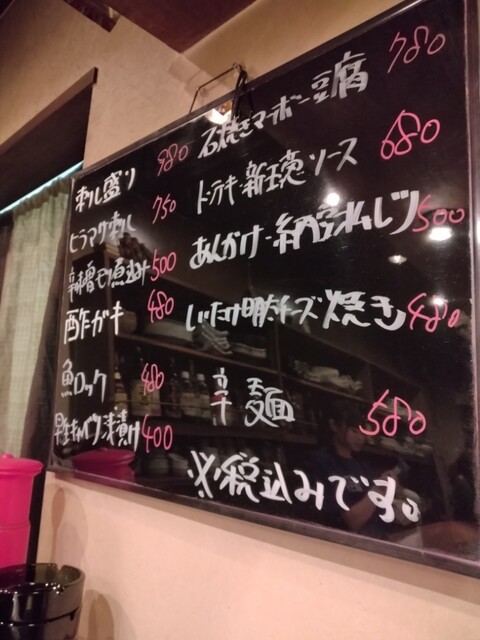 刺し盛り 980
ヒラマサ刺し 750
辛味噌モツ煮込み 500
酢ガキ 480
魚ロック 480
早生キャベツ浅漬け 400
石焼きマーボー豆腐 780
トンテキ新玉葱ソース 680
あんかけ 500
しいたけ明太チーズ焼き 480
辛麺 580
※税込みです。